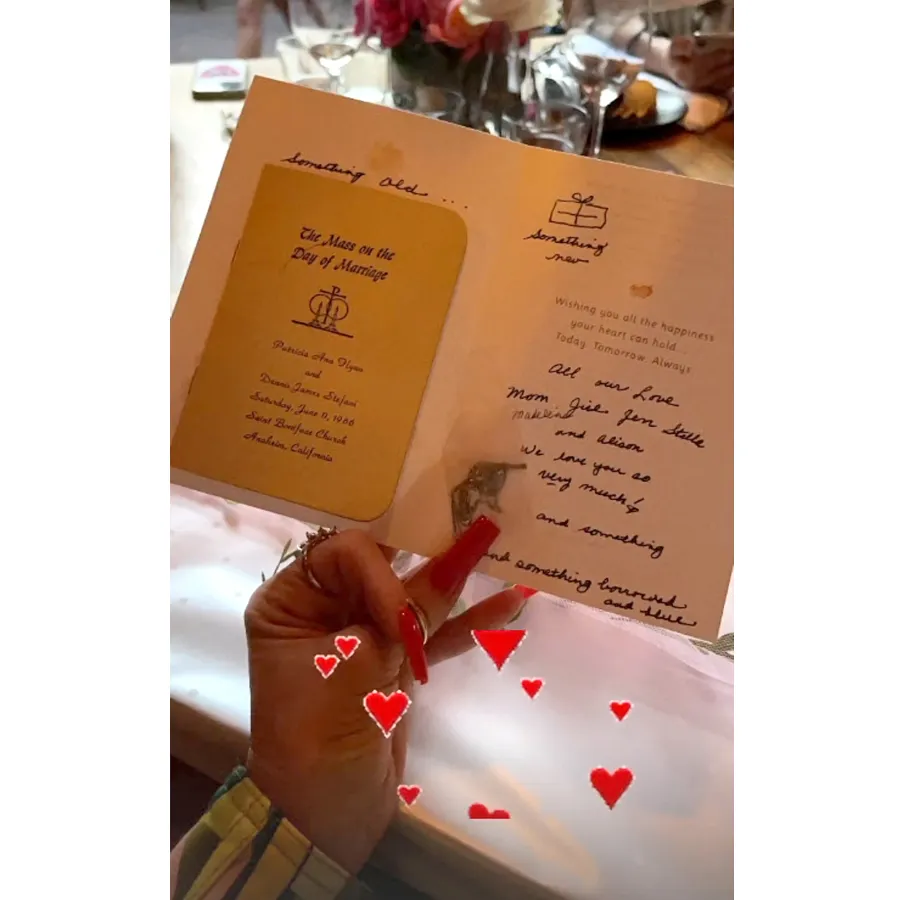 Something Old ...
The Mass on the
Day of Marriage
Patricia Ann Flynn
and
Dennis James Stefani
Saturday, June 11, 1966
Saint Boniface Church
Anaheim, California
Something
new
Wishing you all the happiness
your heart can hold...
Today. Tomorrow. Always
All our Love
Mom Jill Jen
Madeline
and Alison
We love you so
very much!
and something
and something borrowed
and blue